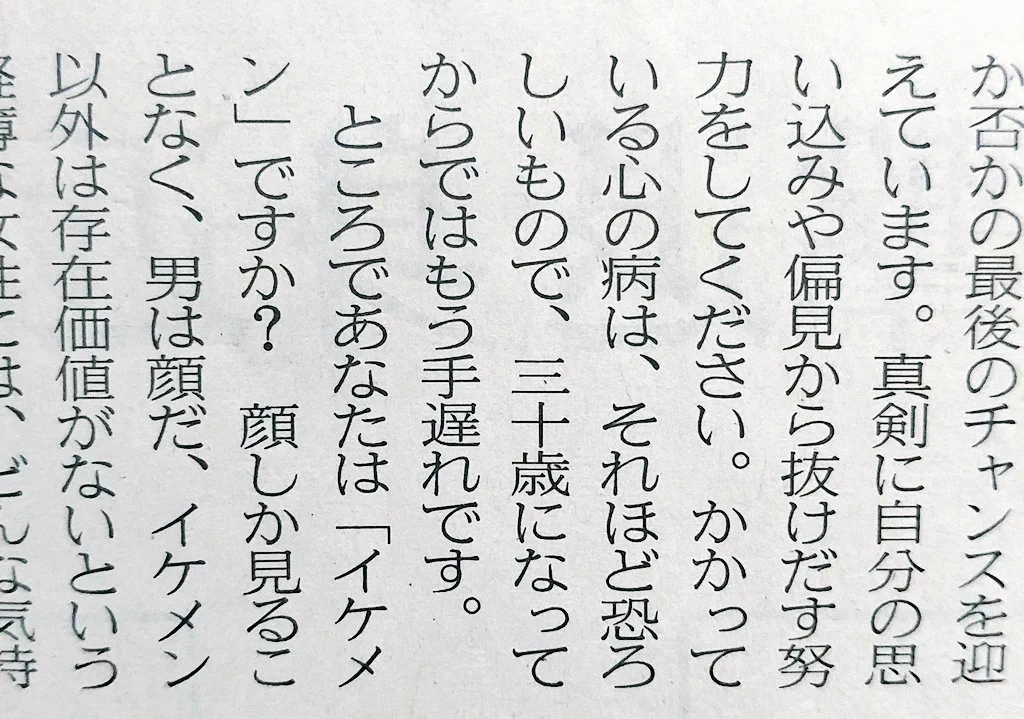 か否かの最後のチャンスを迎
えています。真剣に自分の思
い込みや偏見から抜けだす努
力をしてください。かかって
いる心の病は、それほど恐ろ
しいもので、三十歳になって
からではもう手遅れです。
ところであなたは「イケメ
ン」ですか？　顔しか見るこ
となく、男は顔だ、イケメン
以外は存在価値がないという
軽薄な女性には、どんな気持